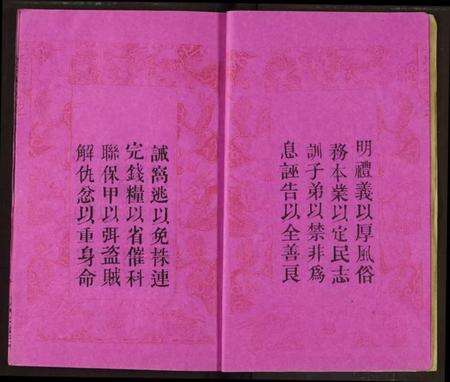 明禮義以厚風俗
務本業以定民志
訓子弟以禁非為
息誣告以全善良
誡窩逃以免株連
完錢糧以省催科
聯保甲以弭盜賊
解仇忿以重身命